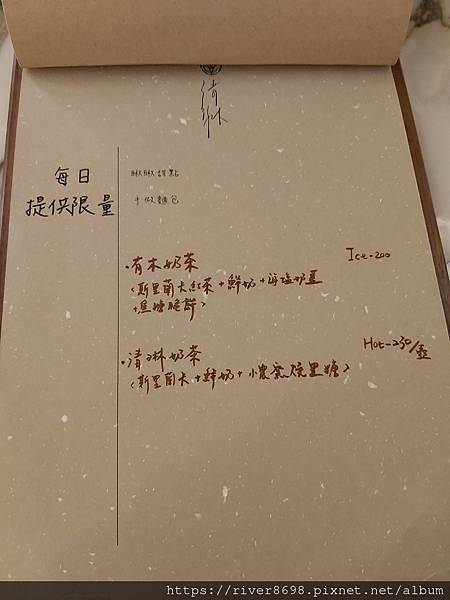 清淋
每日
提供限量
瞅瞅甜點
手做麵包
·有木奶茶 Ice-200
(斯里蘭卡紅茶+鮮奶+海塩奶蓋
+焦糖脆餅)
·清淋奶茶 Hot-230/壺
(斯里蘭卡+鮮奶+小農蜜院黑糖)
https://river8698.pixnet.net/album